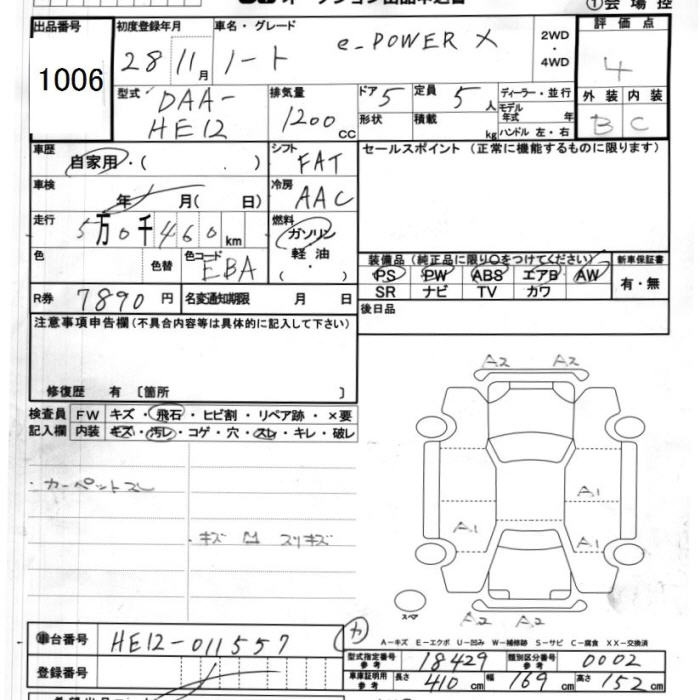 オークション出品申込書
① 会 場 控
出品番号
1006
初度登録年月
28 11月
車名・グレード
ノート e-POWER X
2WD
・
4WD
評価点
4
外装 内装
B C
型式
DAA-
HE12
排気量
1200 cc
ドア 5
形状
定員 5 人
積載 kg
ディーラー・並行
モデル年式 年
ハンドル 左・右
車歴
自家用・( )
シフト
FAT
車検
年 月( 日)
冷房
AAC
走行
5万0千460 km
燃料
ガソリン
軽油
( ・ )
色
色替
色コード
EBA
R券 7890 円
名変通知期限 月 日
セールスポイント (正常に機能するものに限ります)
装備品 (純正品に限り○をつけてください)
PS PW ABS エアB AW
SR ナビ TV カワ
新車保証書
有・無
後日品
注意事項申告欄(不具合内容等は具体的に記入して下さい)
修復歴 有 〔箇所 〕
検査員
記入欄
FW キズ・飛石・ヒビ割・リペア跡・×要
内装 キズ・汚レ・コゲ・穴・スレ・キレ・破レ
・カーペットスレ
・キズ 凹 スリキズ
A2 A2
A1
A1
A2 A2
スペア
A-キズ E-エクボ U-凹み W-補修跡 S-サビ C-腐食 XX-交換済
車台番号 HE12-011557
カ
登録番号
型式指定番号
参考
18429
類別区分番号
参考
0002
車庫証明用
参考
長さ 410 cm 幅 169 cm 高さ 152 cm